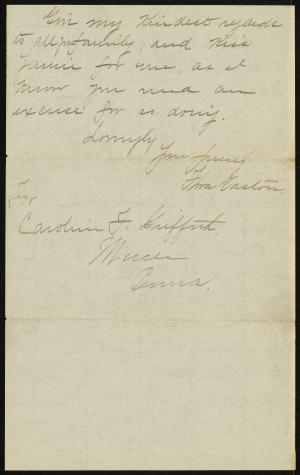 Give my kindest regards
to all my family, and kiss
Jamie for me, as I
know you need an
excuse for so doing.
Lovingly
Your friend
Flora Easton.
For
Caroline F. Griffith,
Mercer
Penna.